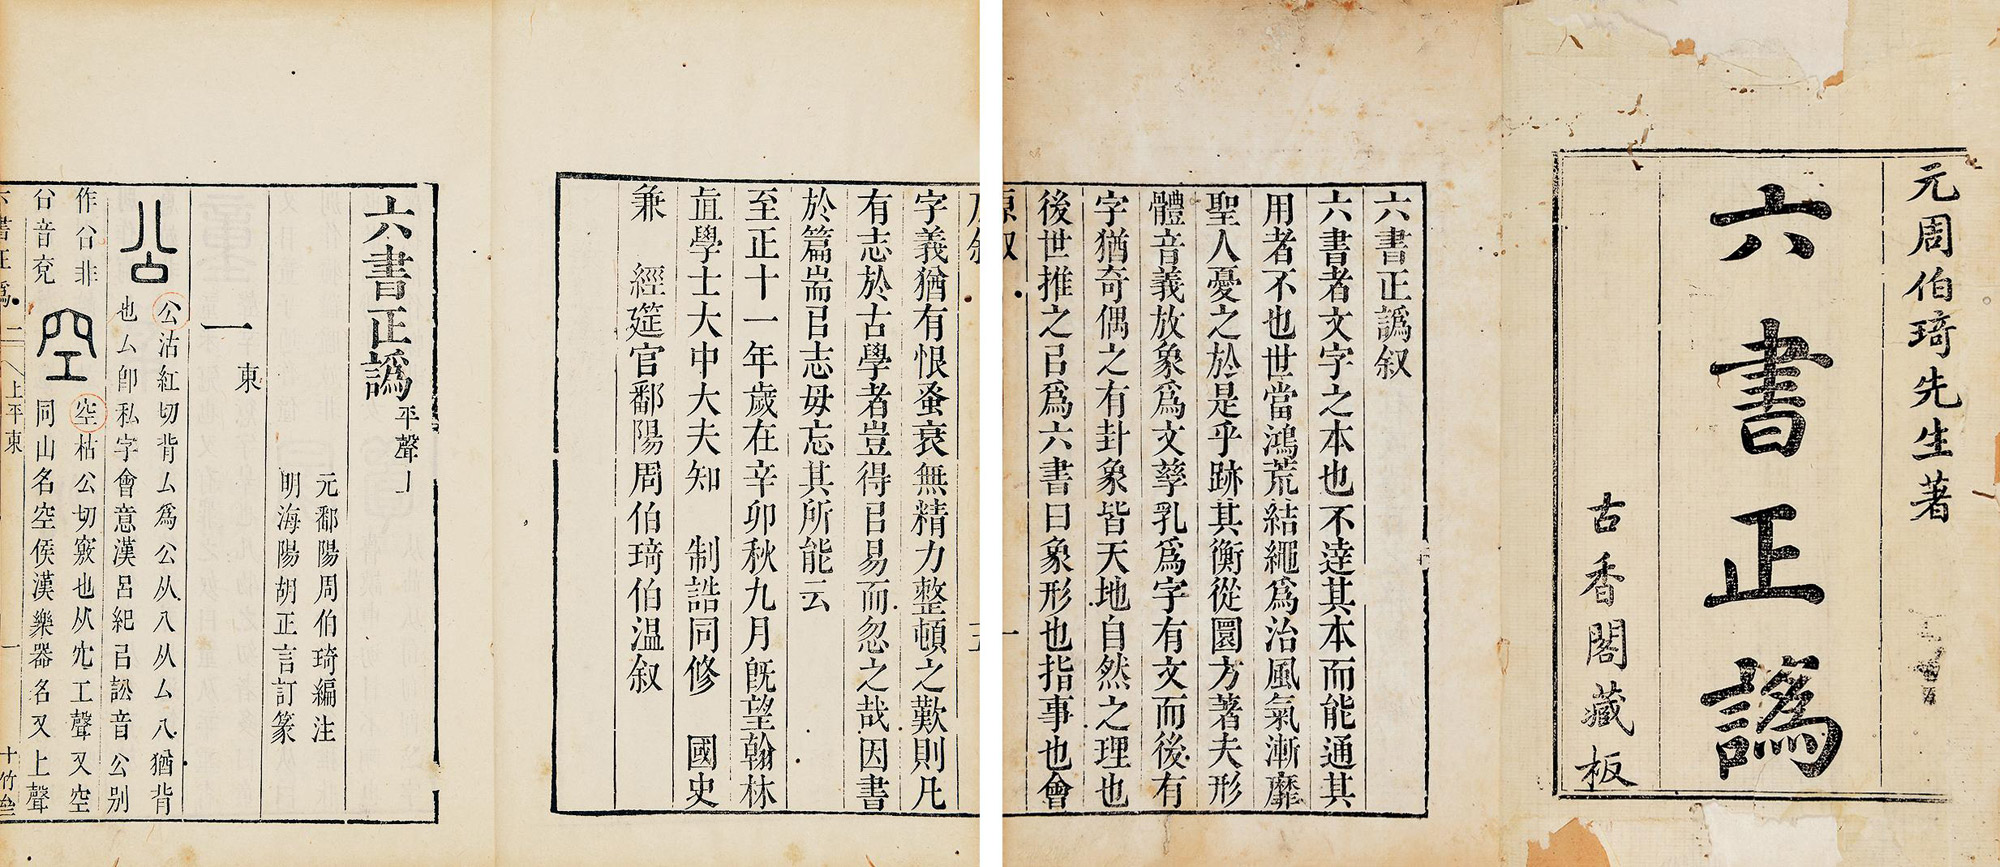 元周伯琦先生著
六書正譌
古香閣藏板
六書正譌叙
六書者文字之本也不達其本而能通其
用者不也世當鴻荒結繩爲治風氣漸靡
聖人憂之於是乎跡其衡從圜方著夫形
體音義放象爲文孳乳爲字有文而後有
字猶奇偶之有封象皆天地自然之理也
後世推之㠯爲六書曰象形也指事也會
原叙
一
原叙
五
字義猶有恨蚤衰無精力整頓之歎則凡
有志於古學者豈得㠯易而忽之哉因書
於篇耑㠯志毋忘其所能云
至正十一年歲在辛卯秋九月旣望翰林
直學士大中大夫知 制誥同修 國史
兼 經筵官鄱陽周伯琦伯溫叙
六書正譌 平聲上
元鄱陽周伯琦編注
明海陽胡正言訂篆
一 東
公 公沽紅切背厶爲公从八从厶八猶背
也厶卽私字會意漢呂紀㠯訟音公别
作㕣非 空 空枯公切竅也从穴工聲又空
㕣音兗 同山名空侯漢樂器名又上聲
六書正譌 二 上平東 一 十竹